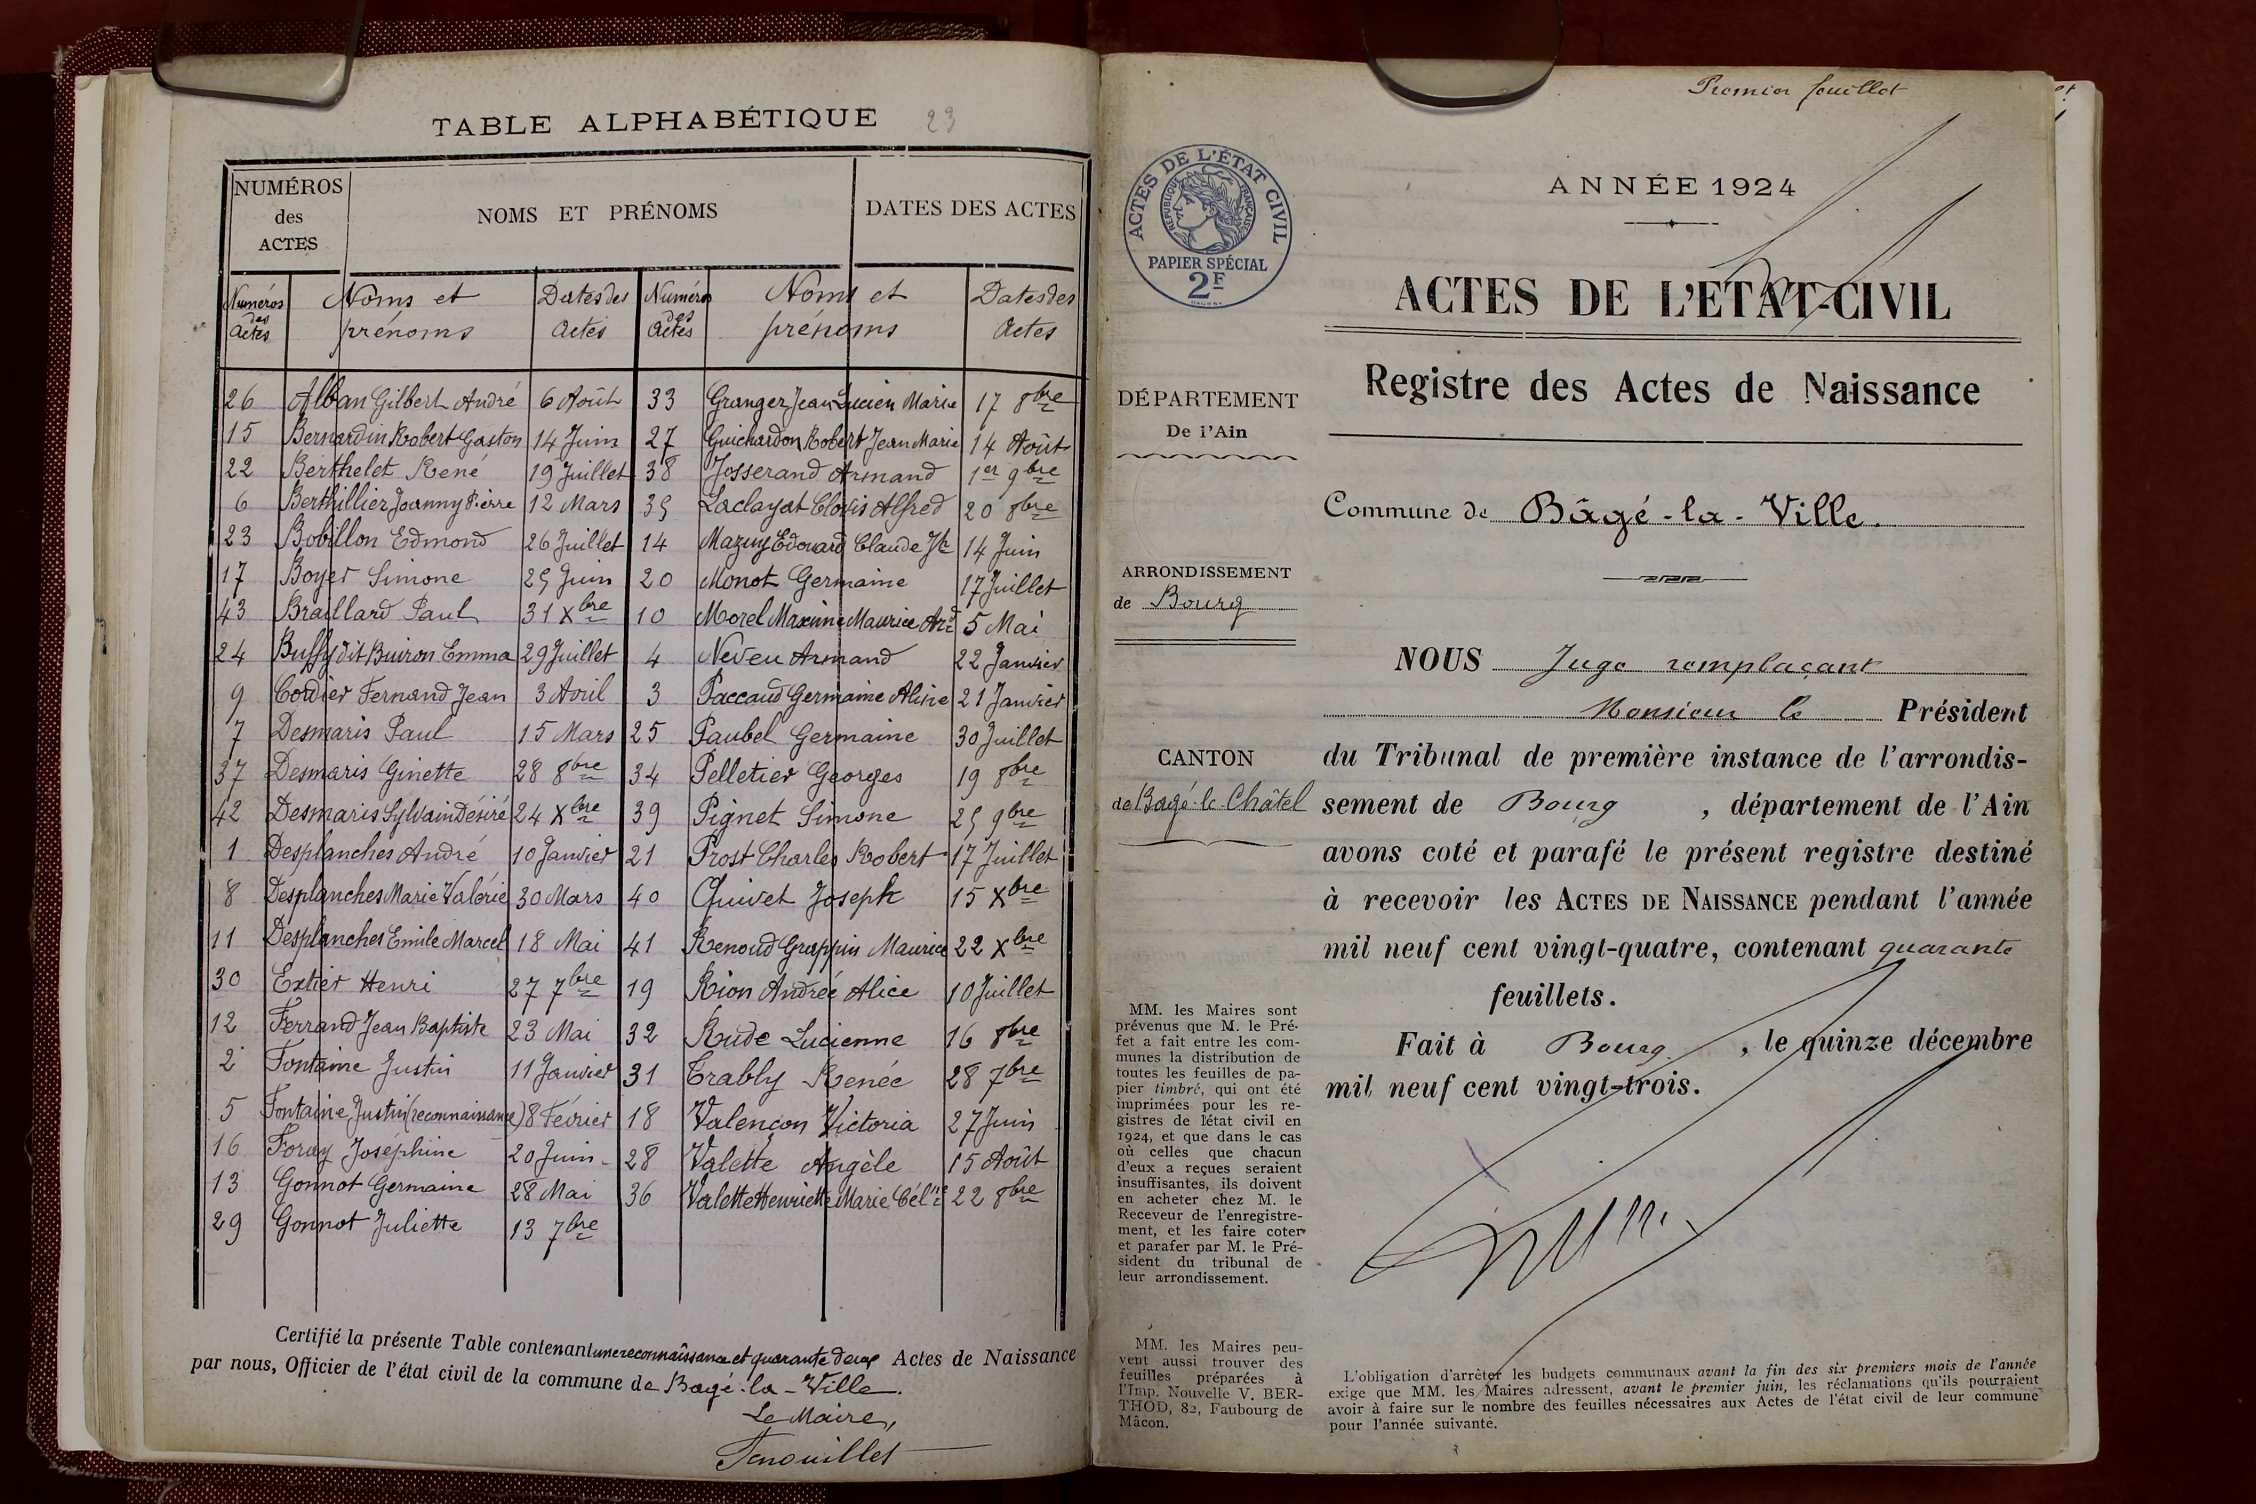 TABLE ALPHABÉTIQUE 23
NUMÉROS des ACTES NOMS ET PRÉNOMS DATES DES ACTES
Numéros des Actes Noms et prénoms Dates des Actes Numéros des Actes Noms et prénoms Dates des Actes
26 Alban Gilbert André 6 Août 33 Granger Jean Lucien Marie 17 8bre
15 Bernardin Robert Gaston 14 Juin 27 Guichardon Robert Jean Marie 14 Août
22 Berthelet René 19 Juillet 38 Josserand Armand 1er 9bre
6 Berthillier Joanny Pierre 12 Mars 35 Laclayat Clovis Alfred 20 8bre
23 Bobillon Edmond 26 Juillet 14 Mazuy Edouard Claude Jh 14 Juin
17 Boyer Simone 25 Juin 20 Monot Germaine 17 Juillet
43 Braillard Paul 31 Xbre 10 Morel Maxime Maurice Ard 5 Mai
24 Buffy dit Buiron Emma 29 Juillet 4 Neveu Armand 22 Janvier
9 Cordier Fernand Jean 3 Avril 3 Paccaud Germaine Aline 21 Janvier
7 Desmaris Paul 15 Mars 25 Paubel Germaine 30 Juillet
37 Desmaris Ginette 28 8bre 34 Pelletier Georges 19 8bre
42 Desmaris Sylvain Désiré 24 Xbre 39 Pignet Simone 25 9bre
1 Desplanches André 10 Janvier 21 Prost Charles Robert 17 Juillet
8 Desplanches Marie Valérie 30 Mars 40 Quivet Joseph 15 Xbre
11 Desplanches Emile Marcel 18 Mai 41 Renoud Grappin Maurice 22 Xbre
30 Extier Henri 27 7bre 19 Rion Andrée Alice 10 Juillet
12 Ferrand Jean Baptiste 23 Mai 32 Rude Lucienne 16 8bre
2 Fontaine Justin 11 Janvier 31 Trably Renée 28 7bre
5 Fontaine Justin (reconnaissance) 8 Février 18 Valençon Victoria 27 Juin
16 Foray Joséphine 20 Juin 28 Valette Angèle 15 Août
13 Gonnot Germaine 28 Mai 36 Valette Henriette Marie Célne 22 8bre
29 Gonnot Juliette 13 7bre
Certifié la présente Table contenant une reconnaissance et quarante deux Actes de Naissance
par nous, Officier de l'état civil de la commune de Bagé-la-Ville.
Le Maire,
Fenouillet
Premier feuillet
ACTES DE L'ÉTAT CIVIL
RÉPUBLIQUE FRANÇAISE
PAPIER SPÉCIAL
2F
DÉPARTEMENT
De l'Ain
ARRONDISSEMENT
de Bourg
CANTON
de Bagé-le-Châtel
MM. les Maires sont
prévenus que M. le Pré-
fet a fait entre les com-
munes la distribution de
toutes les feuilles de pa-
pier timbré, qui ont été
imprimées pour les re-
gistres de l'état civil en
1924, et que dans le cas
où celles que chacun
d'eux a reçues seraient
insuffisantes, ils doivent
en acheter chez M. le
Receveur de l'enregistre-
ment, et les faire coter
et parafer par M. le Pré-
sident du tribunal de
leur arrondissement.
MM. les Maires peu-
vent aussi trouver des
feuilles préparées à
l'Imp. Nouvelle V. BER-
THOD, 82, Faubourg de
Mâcon.
ANNÉE 1924
ACTES DE L'ETAT-CIVIL
Registre des Actes de Naissance
Commune de Bâgé-la-Ville.
NOUS Juge remplaçant
Monsieur le Président
du Tribunal de première instance de l'arrondis-
sement de Bourg, département de l'Ain
avons coté et parafé le présent registre destiné
à recevoir les ACTES DE NAISSANCE pendant l'année
mil neuf cent vingt-quatre, contenant quarante
feuillets.
Fait à Bourg, le quinze décembre
mil neuf cent vingt-trois.
L'obligation d'arrêter les budgets communaux avant la fin des six premiers mois de l'année
exige que MM. les Maires adressent, avant le premier juin, les réclamations qu'ils pourraient
avoir à faire sur le nombre des feuilles nécessaires aux Actes de l'état civil de leur commune
pour l'année suivante.